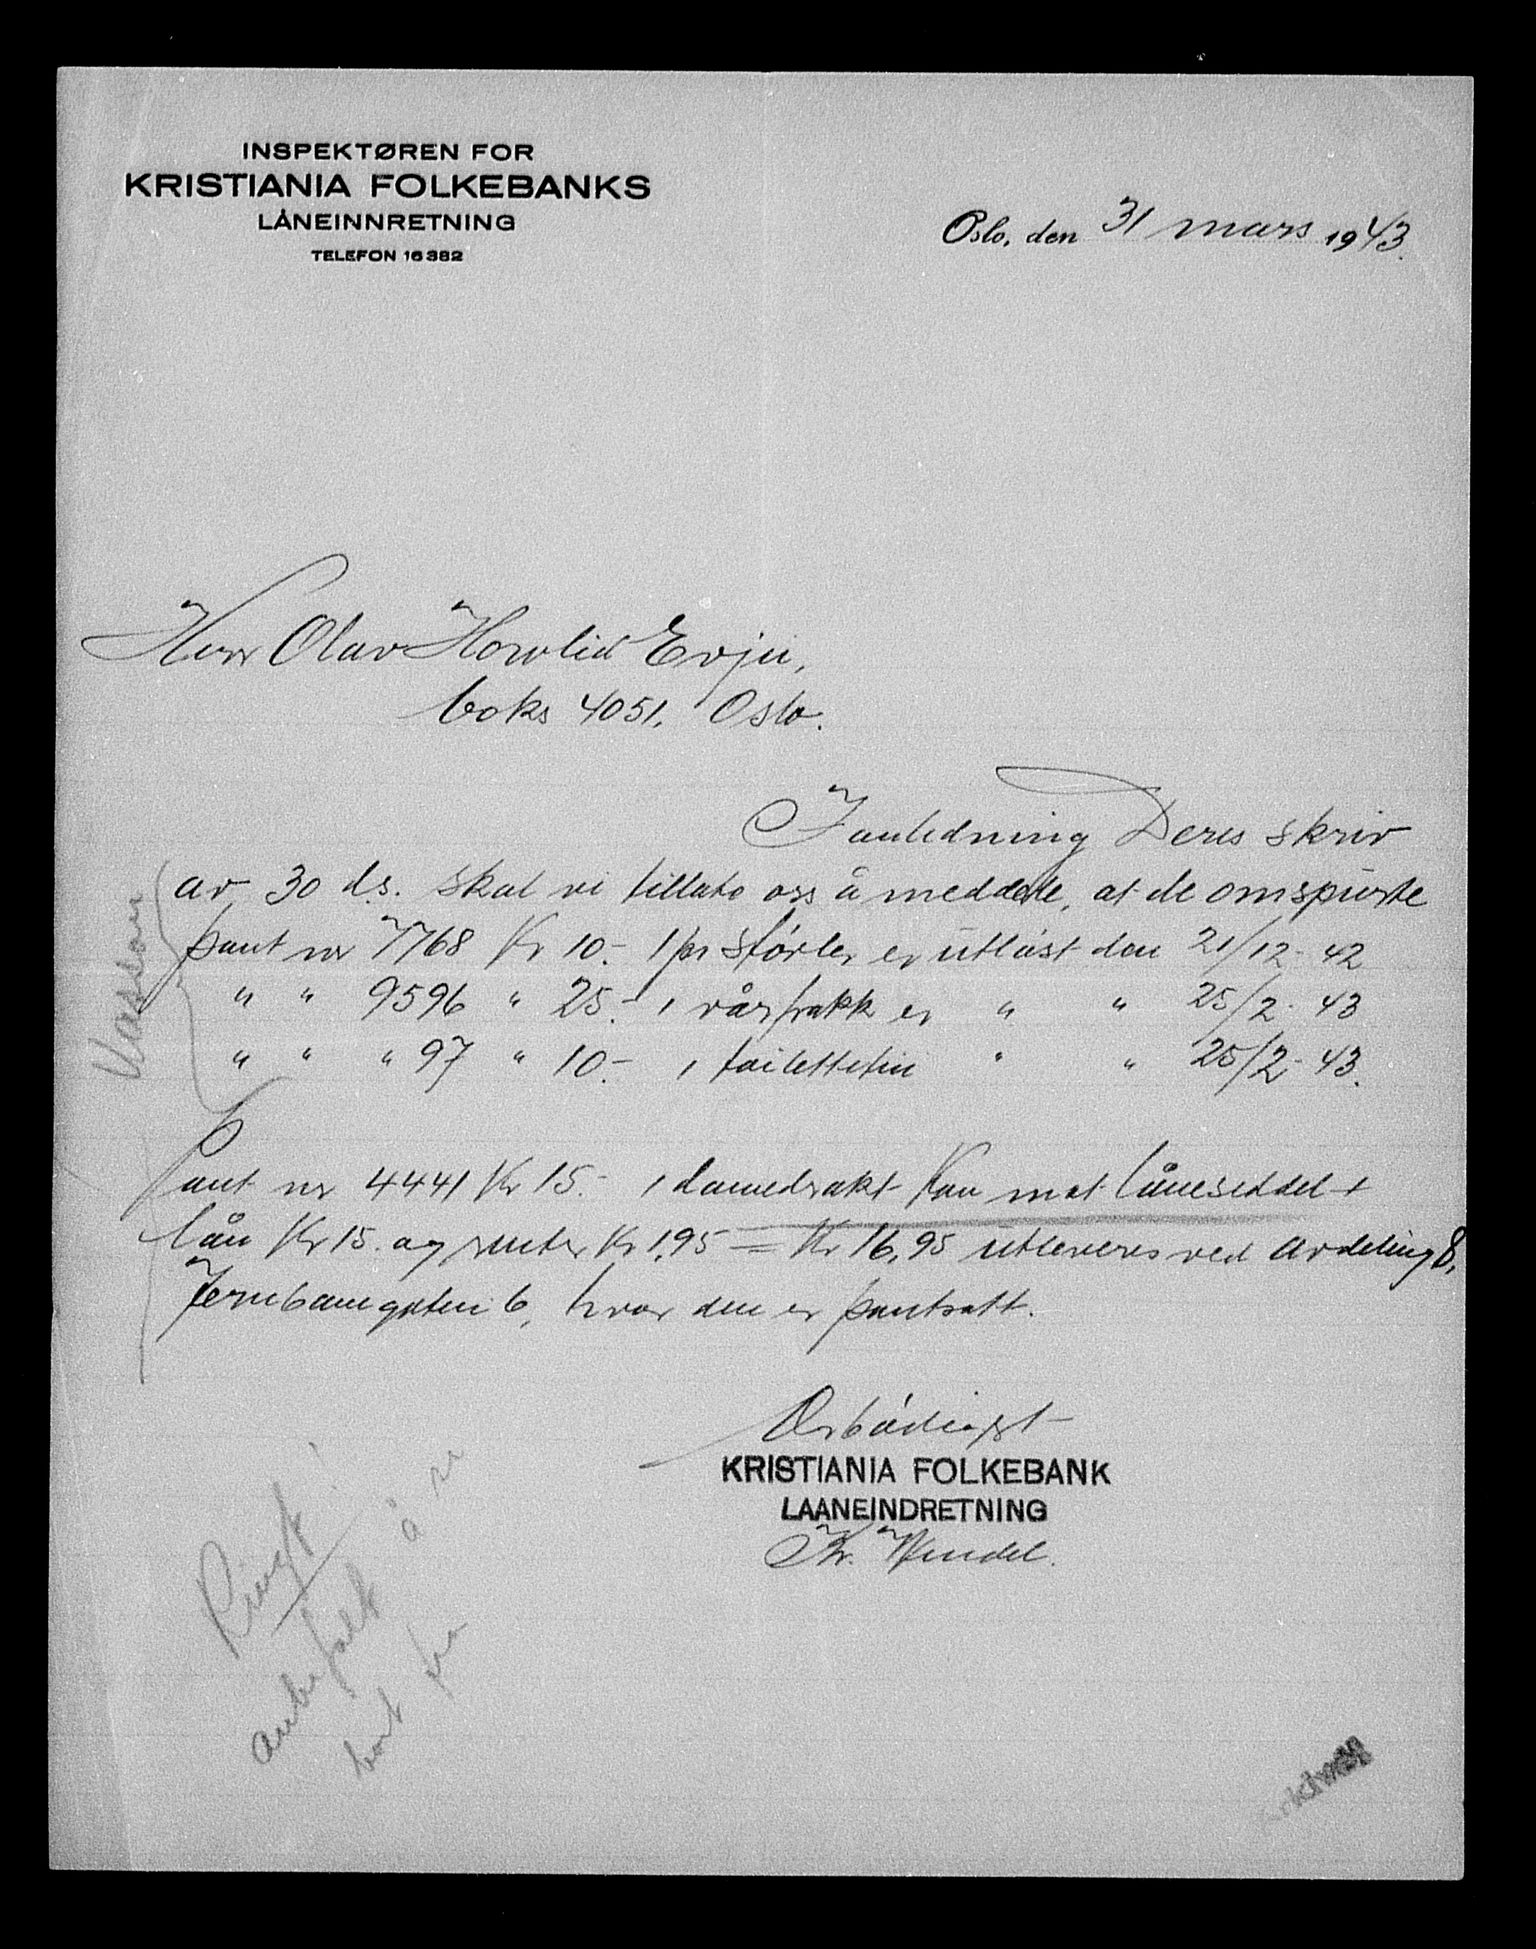 INSPEKTØREN FOR
KRISTIANIA FOLKEBANKS
LÅNEINNRETNING
TELEFON 16382
Oslo, den 31 mars 1943.
Herr Olav Hovlid Evju,
boks 4051. Oslo.
I anledning Deres skriv
av 30 d.s. skal vi tillate oss å meddele, at de omspurte
pant nr 7768 Kr 10.- 1 pr støvler er utløst den 21/12-42
" " 9596 " 25.- 1 vårfrakk er " " 25/2-43
" " " 97 " 10.- 1 " " 25/2-43.
Pant nr 4441 Kr 15.- 1 damedrakt kan mot låneseddel +
lån Kr 15. og renter Kr 1,95 = Kr 16,95 utleveres ved avdeling 8,
Jernbanegaten 6, hvor den er pantsatt.
Ærbødigst
KRISTIANIA FOLKEBANK
LAANEINDRETNING
Kr.
anbefalt å
bort fra